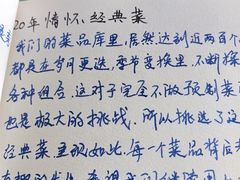 20年情怀、经典菜
我们的菜品库里,居然达到近两百个
都是在岁月更迭,季节变换里,不断
各种组合。这对于完全不做预制菜
也是极大的挑战。所以挑选了这
经典菜呈现如此,每一个菜品背后